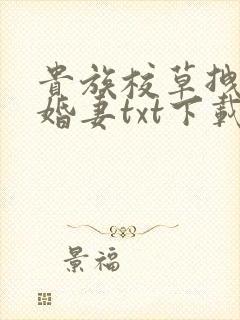 貴族校草拽
婚妻txt下載
景福